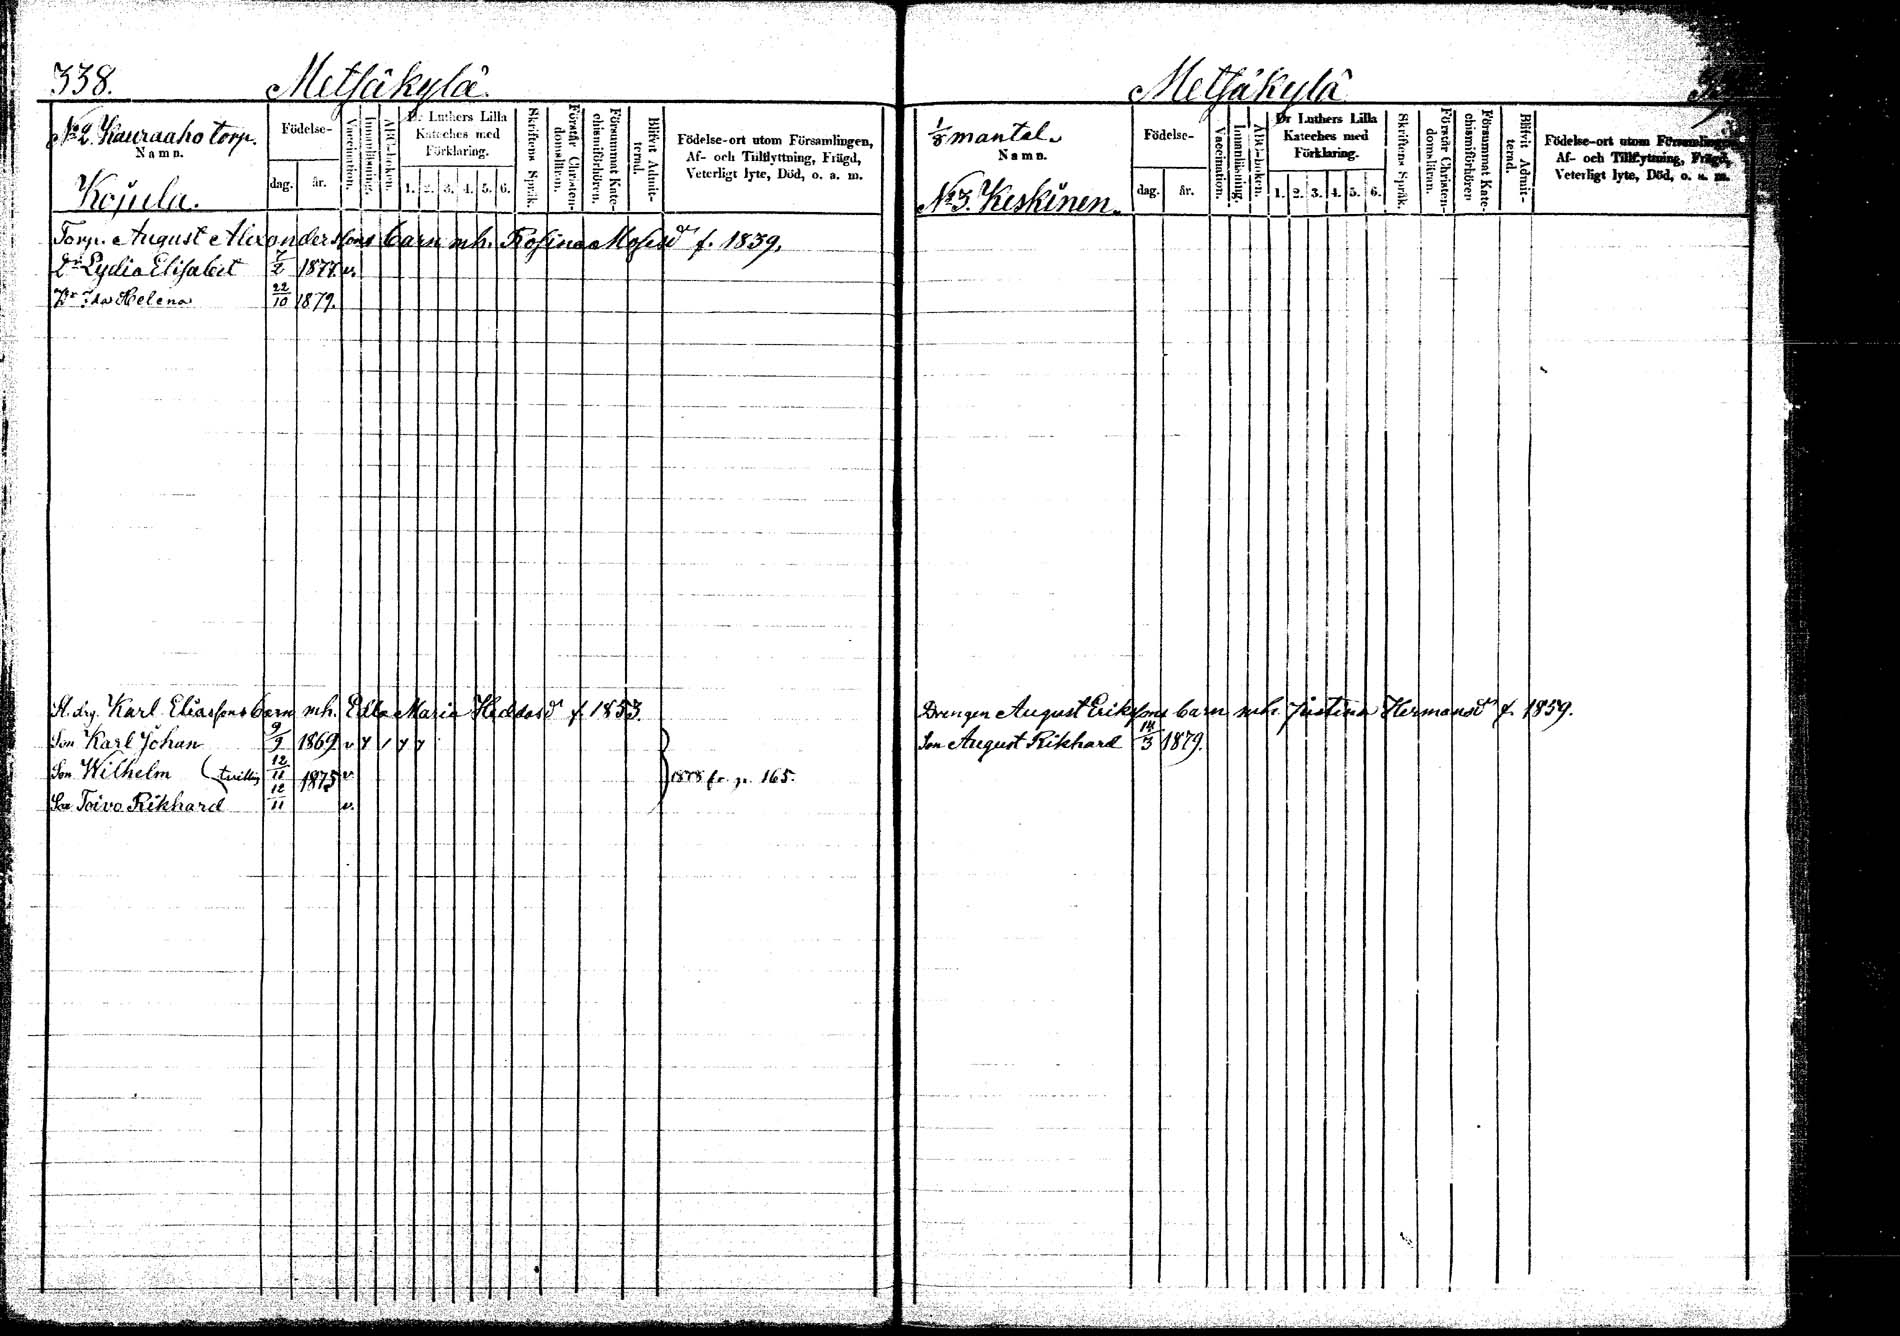 338. Metsäkylä.
No 2. Kauraaho torp.
Namn.
Kojula.
Födelse-
dag. år.
Vaccination.
Innanläsning.
ABC-boken.
Dr Luthers Lilla
Kateches med
Förklaring.
1. 2. 3. 4. 5. 6.
Skriftens Språk.
Förstår Christen-
domsläran.
Försummat Kate-
chismiförhören.
Blifvit Admit-
terad.
Födelse-ort utom Församlingen,
Af- och Tillflyttning, Frägd,
Veterligt lyte, Död, o. a. m.
Torp. August Alexanderssons barn mh. Rosina Mosesdr f. 1839.
Dr Lydia Elisabet 7/2 1877. v.
Dr Ida Helena 22/10 1879.
St. drg. Karl Eliassons barn mh. Edla Maria Heddasdr f. 1853.
Son Karl Johan 9/9 1869 v
Son Wilhelm (tvilling 12/11 1875 v
Son Toivo Rikhard 12/11 v.
1878 fr. p. 165.
Metsäkylä
1/8 mantal.
Namn.
No 3. Keskinen.
Födelse-
dag. år.
Vaccination.
Innanläsning.
ABC-boken.
Dr Luthers Lilla
Kateches med
Förklaring.
1. 2. 3. 4. 5. 6.
Skriftens Språk.
Förstår Christen-
domsläran.
Försummat Kate-
chismiförhören
Blifvit Admit-
terad.
Födelse-ort utom Församlingen,
Af- och Tillflyttning, Frägd,
Veterligt lyte, Död, o. a. m.
Drengen August Erikssons barn mh. Justina Hermansdr f. 1859.
Son August Rikhard 14/3 1879.